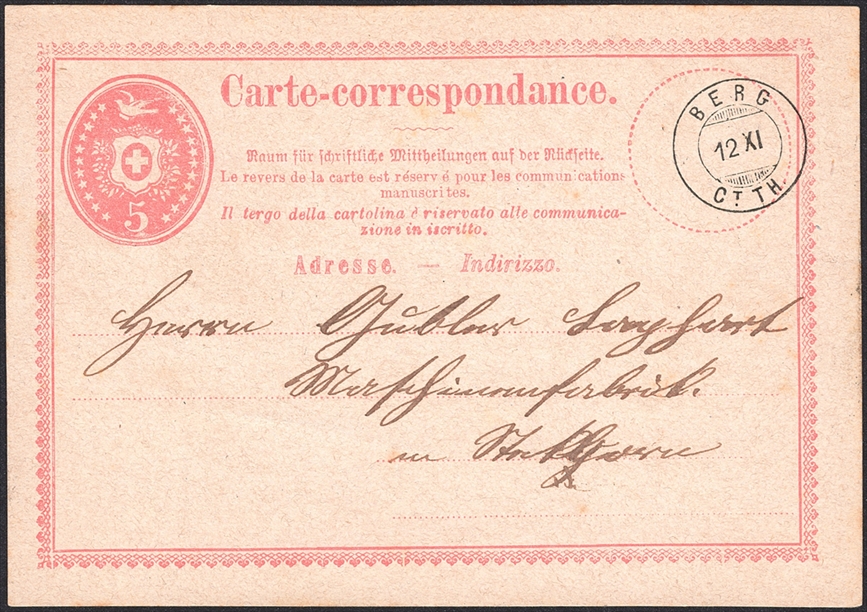 Carte-correspondance.
Raum für schriftliche Mittheilungen auf der Rückseite.
Le revers de la carte est réserv é pour les communications
manuscrites.
Il tergo della cartolina è riservato alle communica-
zione in iscritto.
Adresse. — Indirizzo.
5
BERG
12 XI
CT. TH.
Herrn Gubler
Maschinenfabrik.
in